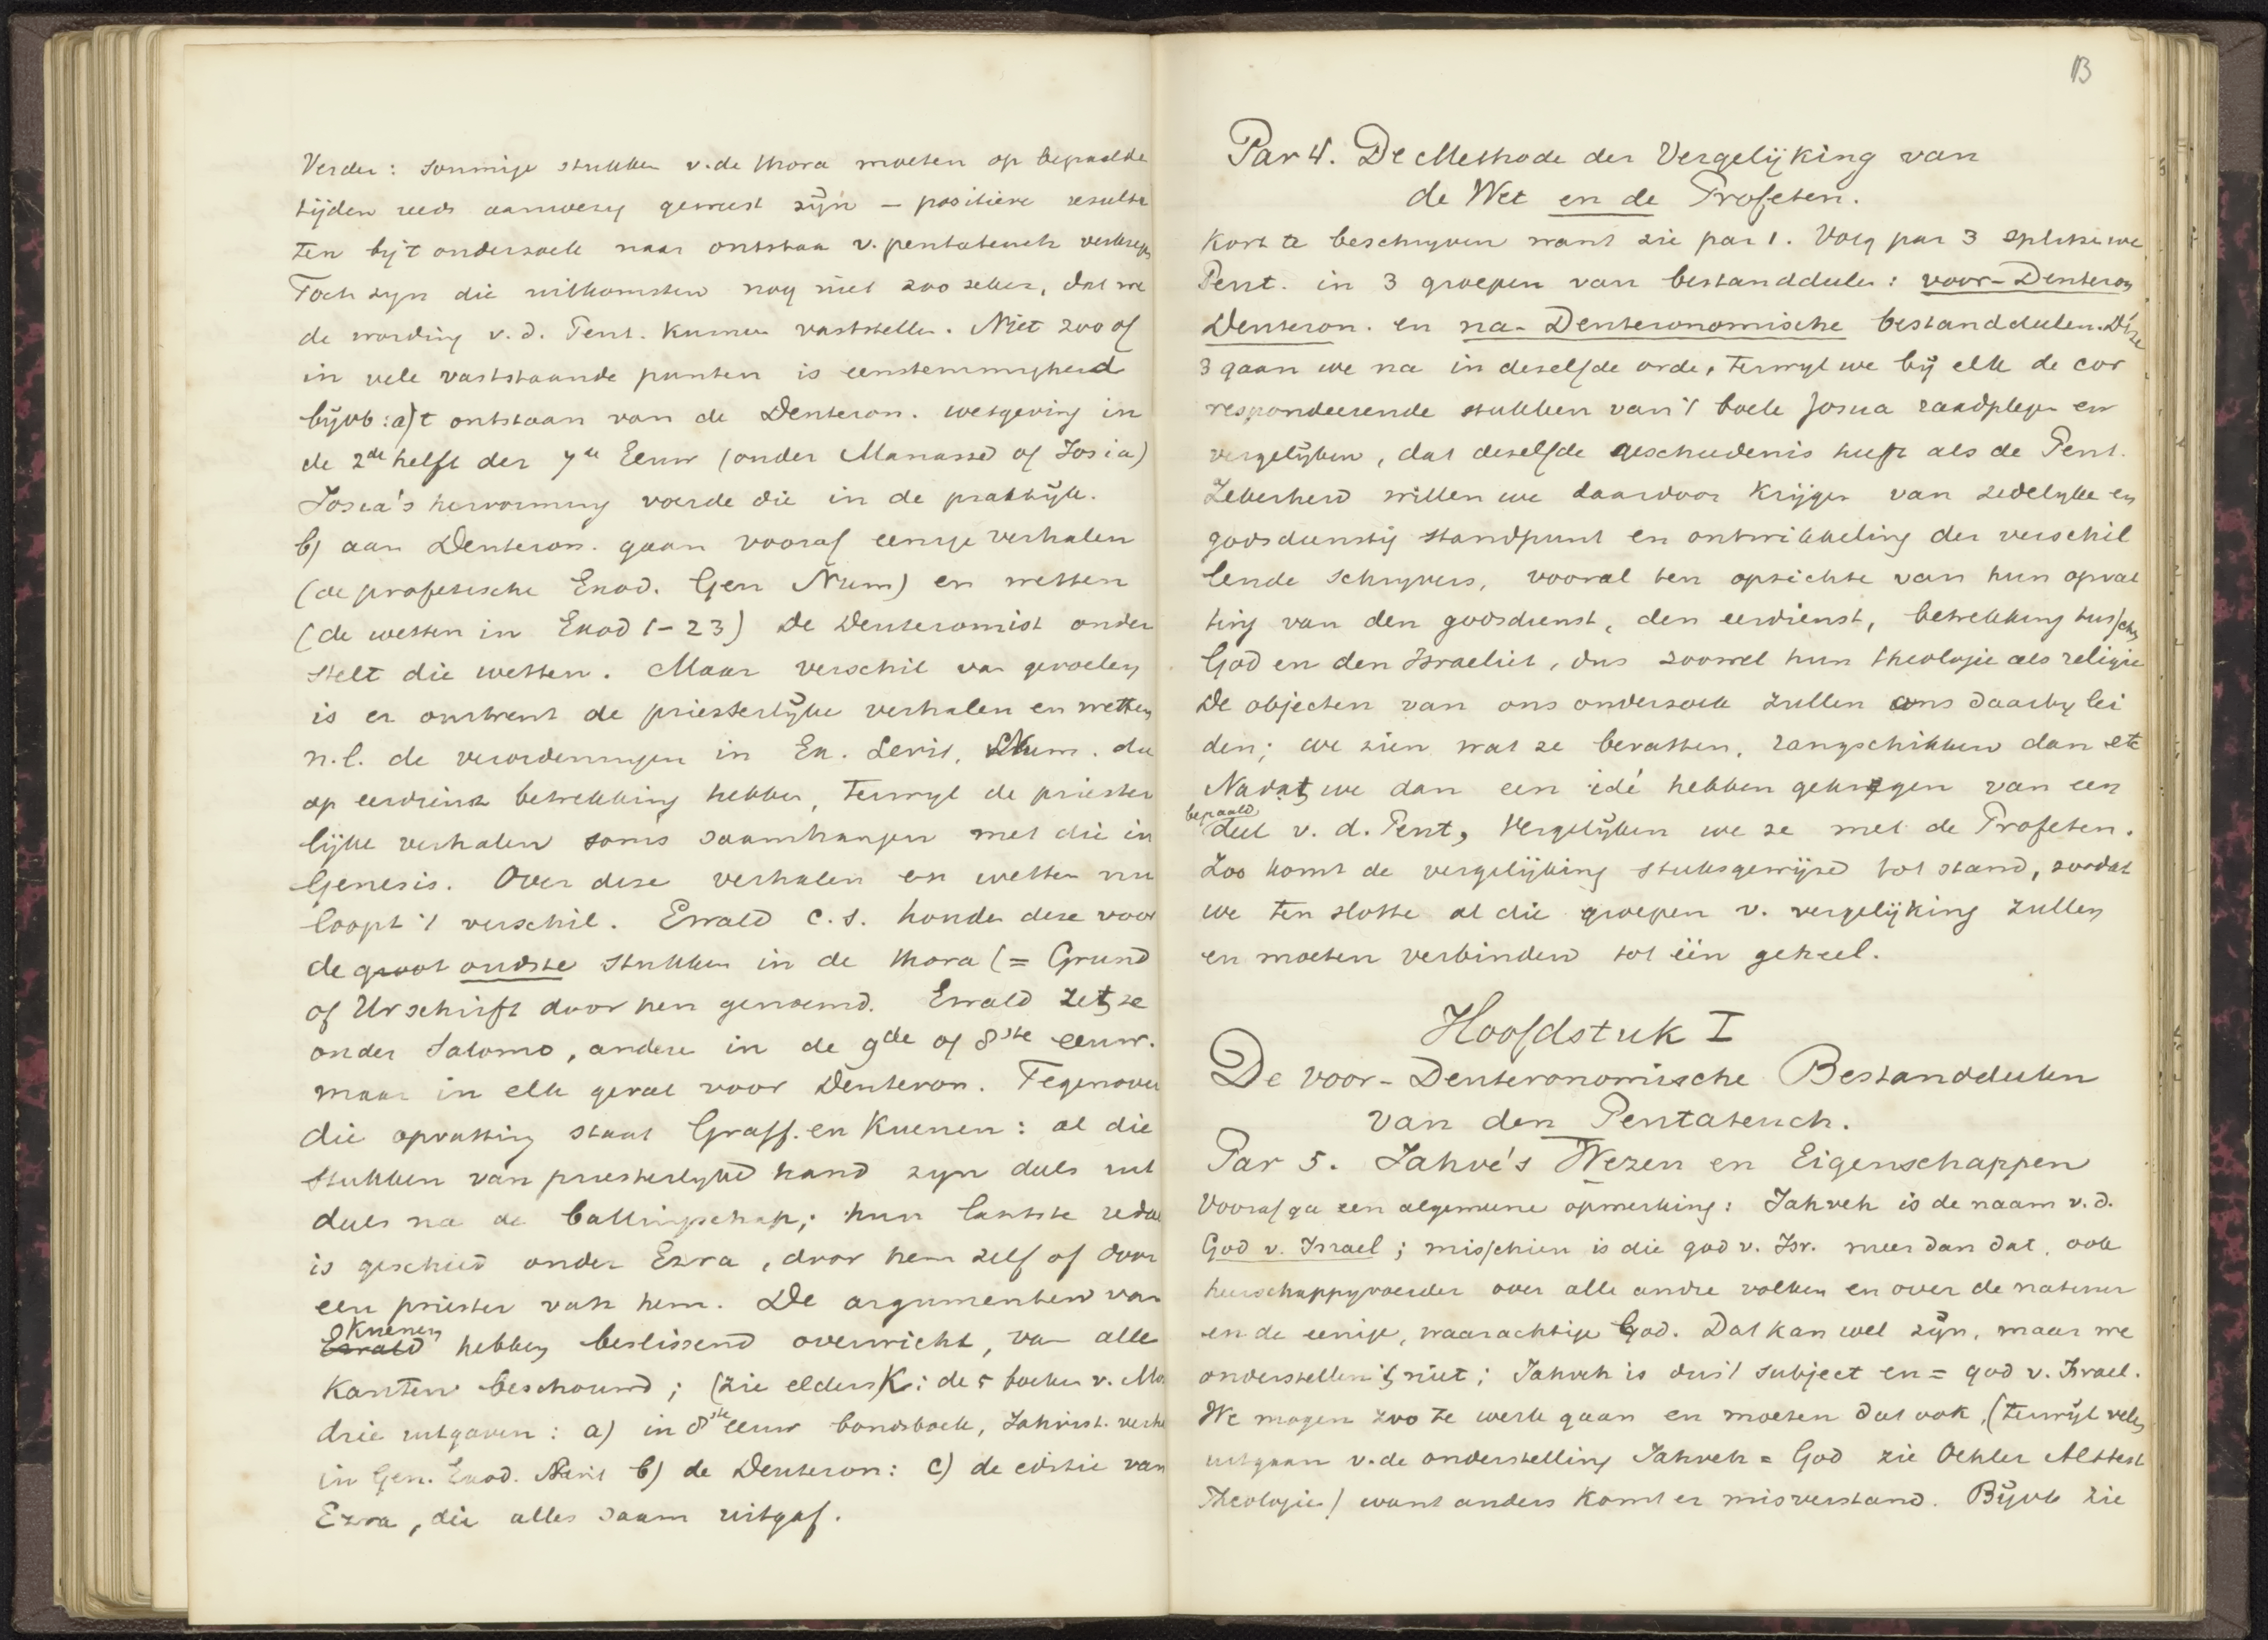 Verder: sommige stukken v. de thora moeten op bepaalde
tijden reeds aanwezig geweest zijn – positieve resulta
ten bij 't onderzoek naar ontstaan v. pentateuch verkregen
Toch zyn die uitkomsten nog niet zoo zeker, dat we
de wording v. d. Pent. kunnen vaststellen. Niet zoo of
in vele vaststaande punten is eenstemmigheid
bijvb: a) 't ontstaan van de Deuteron. wetgeving in
de 2de helft der 7de Eeuw (onder Manasse of Josia)
Josia's hervorming voerde die in de praktijk.
b) aan Deuteron. gaan vooraf eenige verhalen
(de profetische Exod. Gen Num) en wetten
(de wetten in Exod 1-23) De Deuteromist onder
stelt die wetten. Maar verschil van gevoelen
is er omtrent de priesterlijke verhalen en wetten
n.l. de verordeningen in Ex. Levit. Num. die
op eerdienst betrekking hebben, terwyl de priester
lijke verhalen soms saamhangen met die in
Genesis. Over deze verhalen en wetten nu
loopt 't verschil. Ewald c.s. houden deze voor
de groot oudste stukken in de thora (= Grund
of Urschrift door hen genoemd. Ewald zet ze
onder Salomo, andere in de 9de of 8ste eeuw.
maar in elk geval voor Deuteron. Tegenover
die opvatting staat Graff. en Kuenen: al die
stukken van priesterlyke hand zyn deels uit
deels na de ballingschap; hun laatste redac
is geschied onder Ezra, door hem zelf of door
een priester van hem. De argumenten van
Kuenen
Ewald hebben beslissend overwicht, van alle
kanten beschouwd; (zie elders K: de 5 boeken v. Mo.
drie uitgaven: a) in 8ste eeuw bondsboek, Jahvist. verha
in Gen. Exod. Num b) de Deuteron: c) de editie van
Ezra, die alles saam uitgaf.
13
Par 4. De Methode der Vergelijking van
de Wet en de Profeten.
Kort te beschryven want zie par 1. Volg par 3 splitsen we
Pent. in 3 groepen van bestanddeelen: voor-Deuteron
Deuteron. en na-Deuteronomische bestanddeelen. Deze
3 gaan we na in dezelfde orde, terwyl we bij elk de cor
respondeerende stukken van 't boek Josua raadplegen en
vergelijken, dat dezelfde geschiedenis heeft als de Pent.
Zekerheid willen we daardoor krijgen van zedelyke en
godsdienstig standpunt en ontwikkeling der verschil
lende schryvers, vooral ten opzichte van hun opvat
ting van den godsdienst, den eerdienst, betrekking tusschen
God en den Israeliet, dus zoowel hun theologie als religie
De objecten van ons onderzoek zullen ons daarby lei
den; we zien wat ze bevatten, rangschikken dan etc
Nadat we dan een idé hebben gekregen van een
bepaald
deel v. d. Pent, vergelijken we ze met de Profeten.
Zoo komt de vergelijking stuksgewijze tot stand, zoodat
we ten slotte al die groepen v. vergelijking zullen
en moeten verbinden tot één geheel.
Hoofdstuk I
De voor-Deuteronomische Bestanddeelen
van den Pentateuch.
Par 5. Jahve's Wezen en Eigenschappen
Vooraf ga een algemeene opmerking: Jahveh is de naam v. d.
God v. Israel; misschien is die god v. Isr. meer dan dat, ook
heerschappyvoerder over alle andre volken en over de natuur
en de eenige, waarachtige God. Dat kan wel zijn, maar we
onderstellen 't niet; Jahveh is dus 't subject en = god v. Israel.
We mogen zoo te werk gaan en moeten dat ook, (terwijl velen
uitgaan v. de onderstelling Jahveh = God zie Oehler Alttest
Theologie) want anders komt er misverstand. Bijvb zie